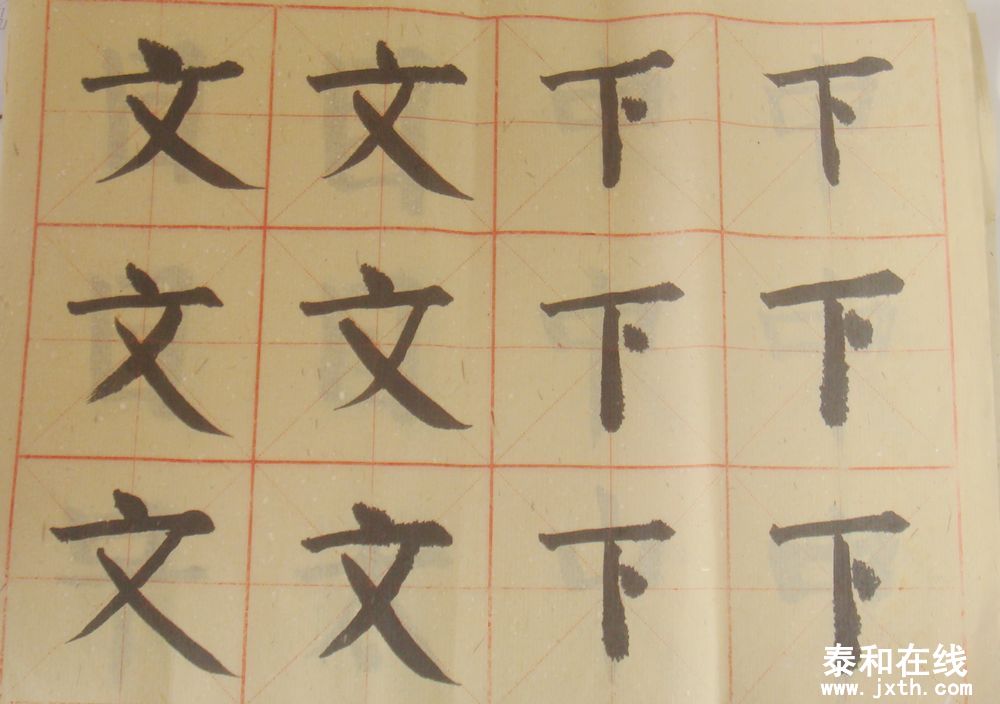 文文下下
文文下下
文文下下
泰和在线
www.jxth.com